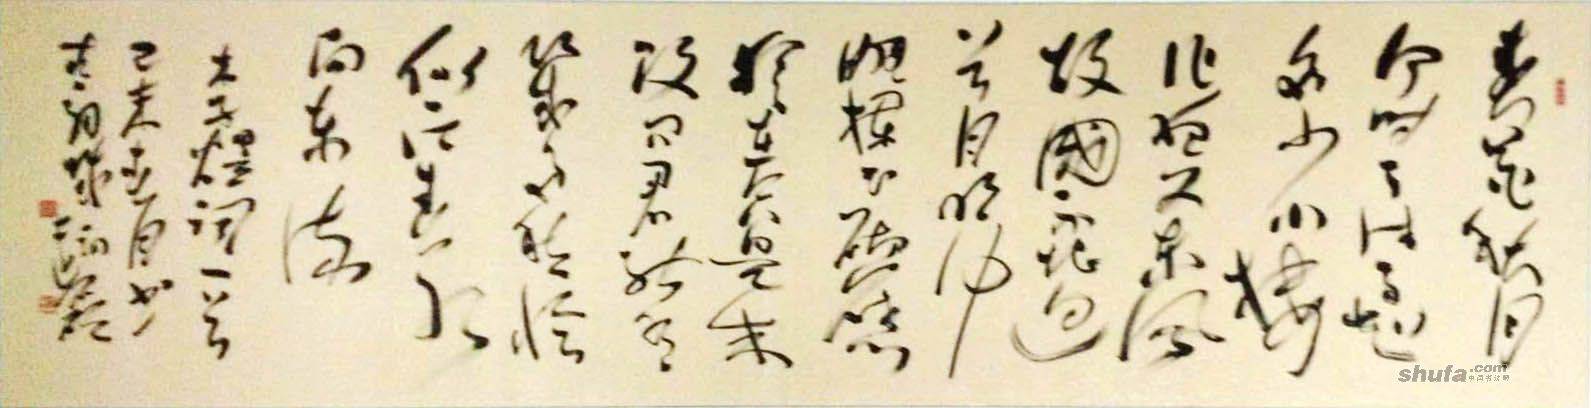 春花秋月
何时了往事知
多少小樓
昨夜又东风
故國不堪回
首月明中
雕栏玉砌應
猶在只是朱
改问君能有
幾多愁恰
似一江春水
向东流
李煜词一首
shufa.com
中国书法网